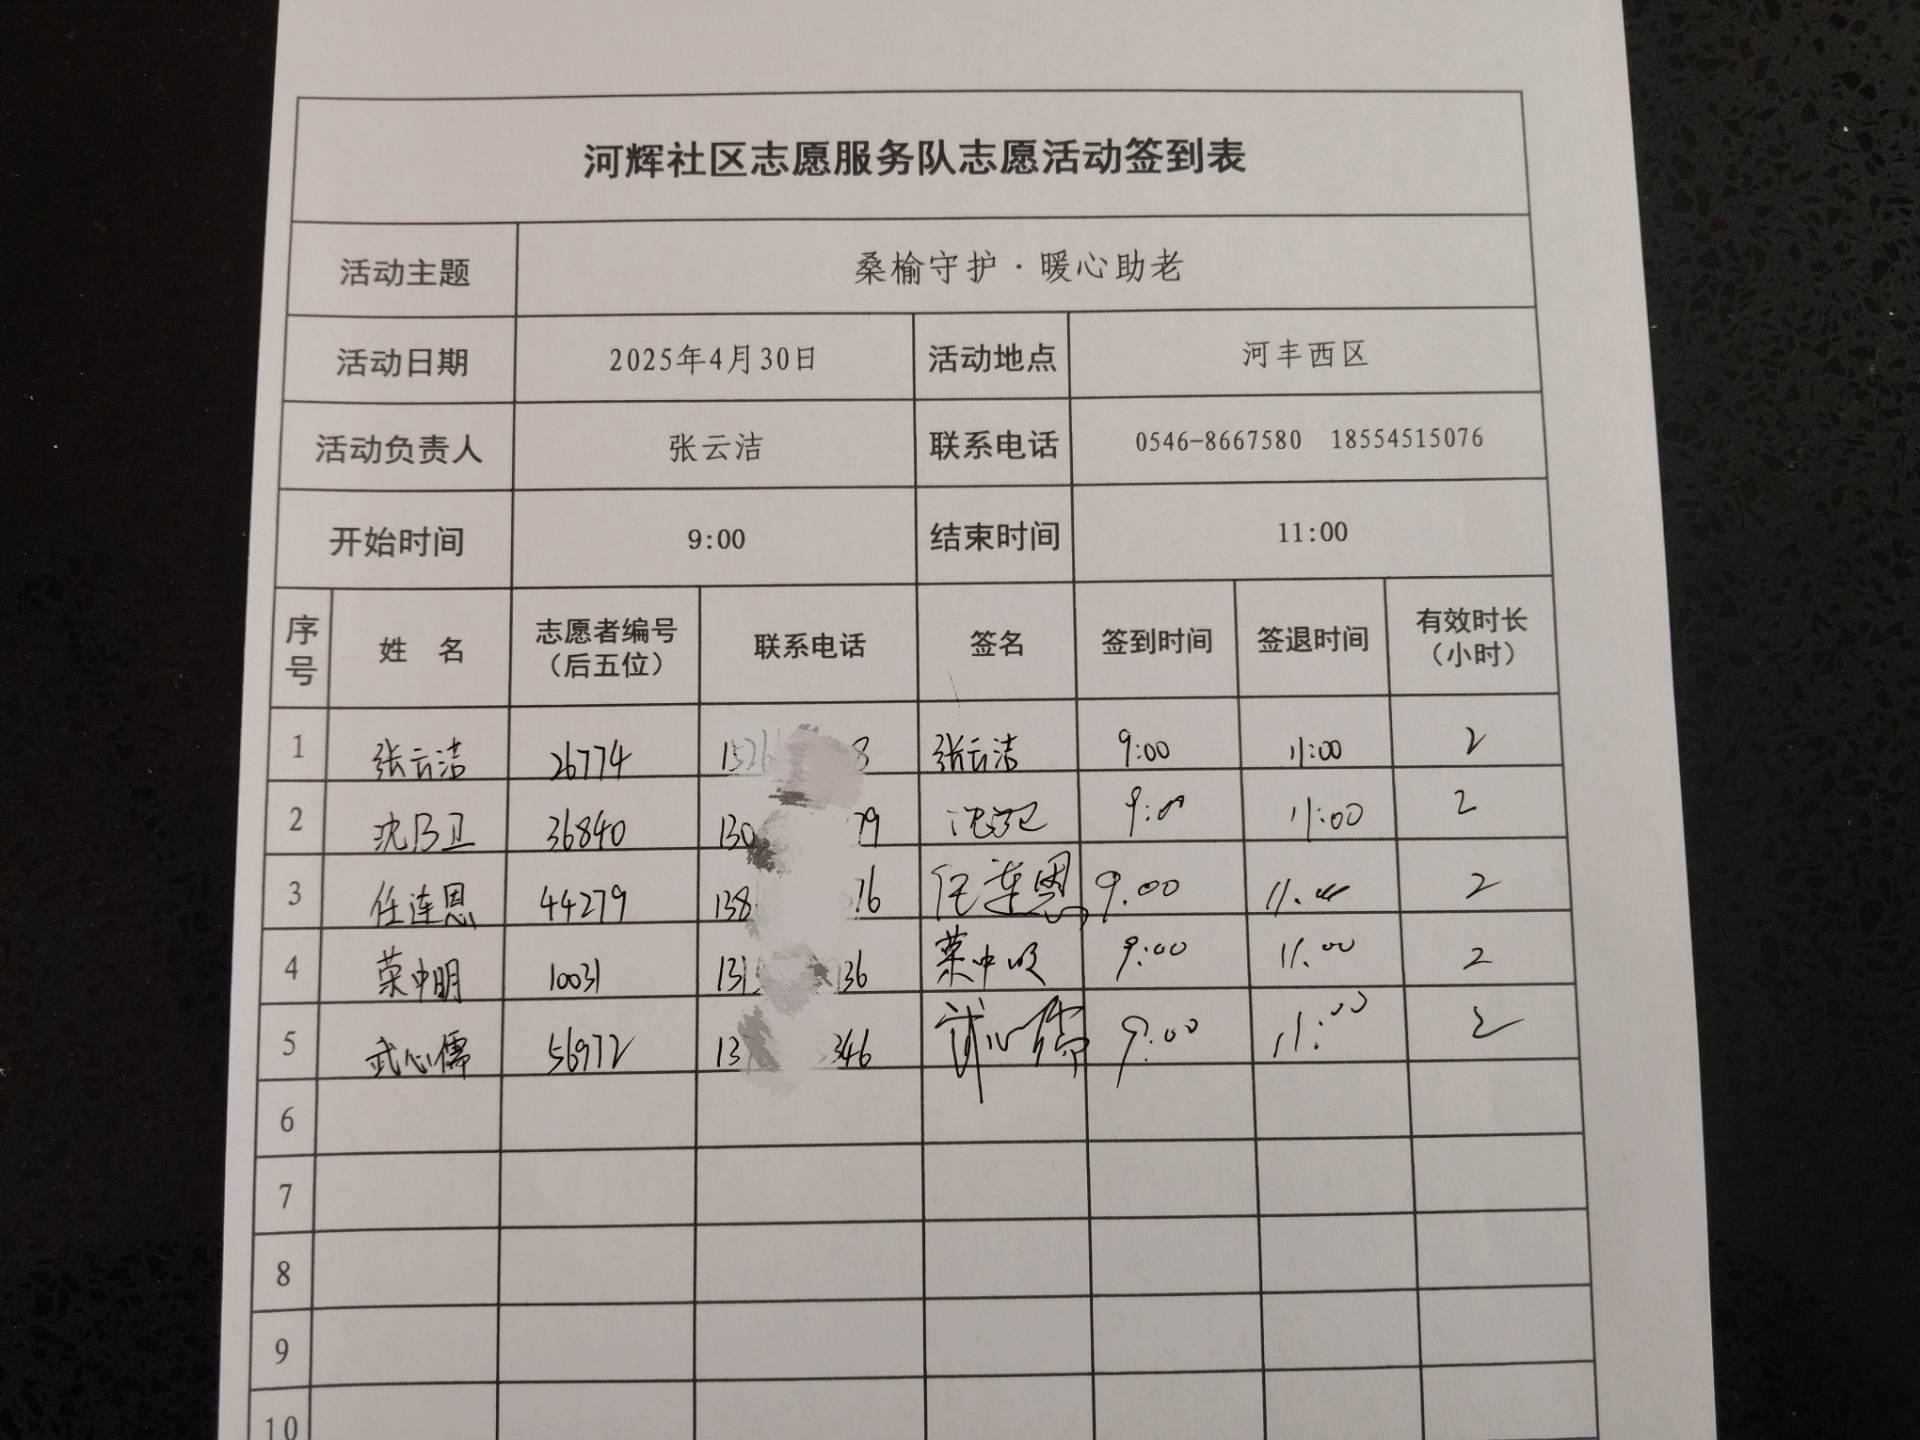 河辉社区志愿服务队志愿活动签到表
活动主题 桑榆守护·暖心助老
活动日期 2025年4月30日 活动地点 河丰西区
活动负责人 张云洁 联系电话 0546-8667580 18554515076
开始时间 9:00 结束时间 11:00
序号 姓 名 志愿者编号（后五位） 联系电话 签名 签到时间 签退时间 有效时长（小时）
1 张云洁 26774 张云洁 9:00 11:00 2
2 沈乃卫 36840 9:00 11:00 2
3 任连恩 44279 任连恩 9:00 11:00 2
4 荣中明 10031 荣中明 9:00 11:00 2
5 武心儒 56972 武心儒 9:00 11:00 2
6
7
8
9
10